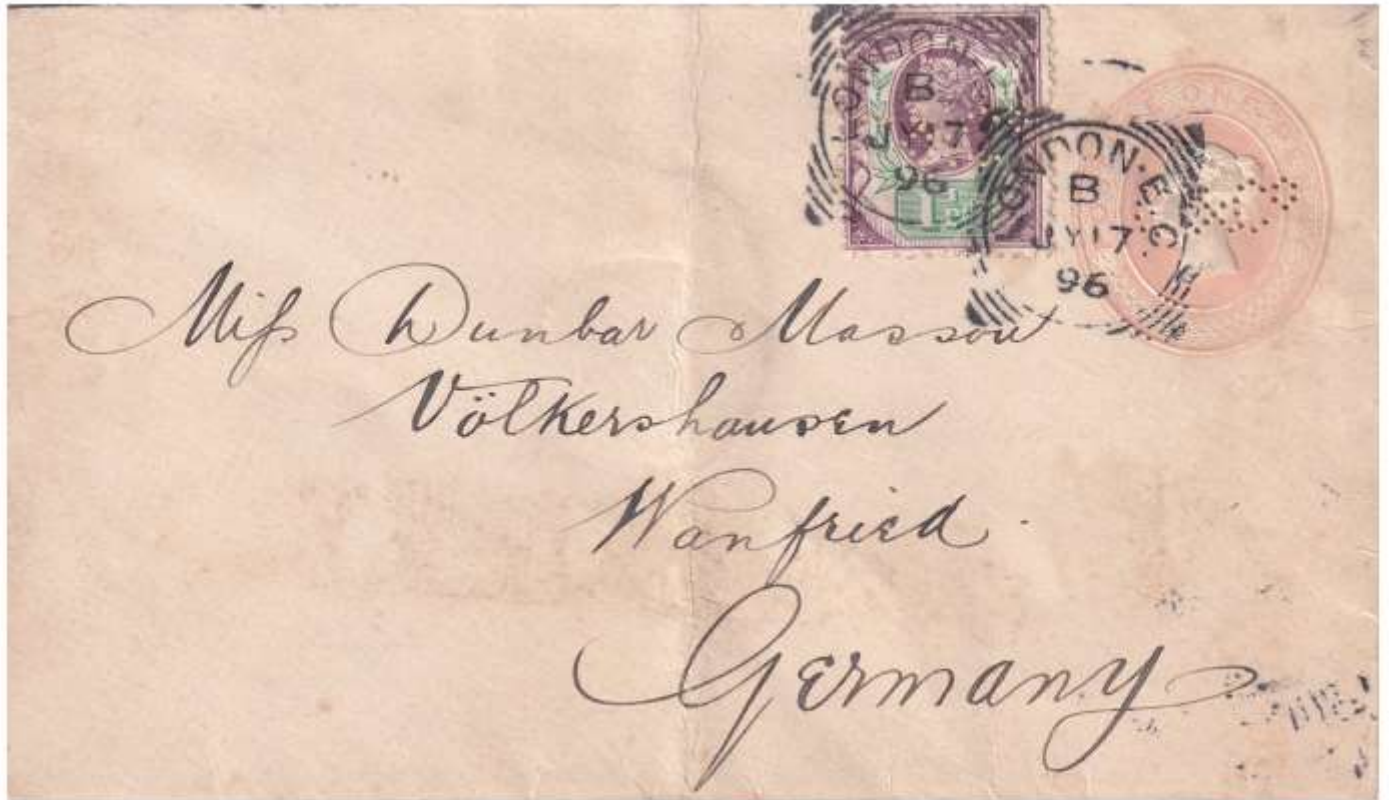 LONDON
B
JY 17
96
1½d
LONDON·E.C.
B
JY 17
96
ONE
Miſs Dunbar Masson
Völkershausen
Wanfried
Germany